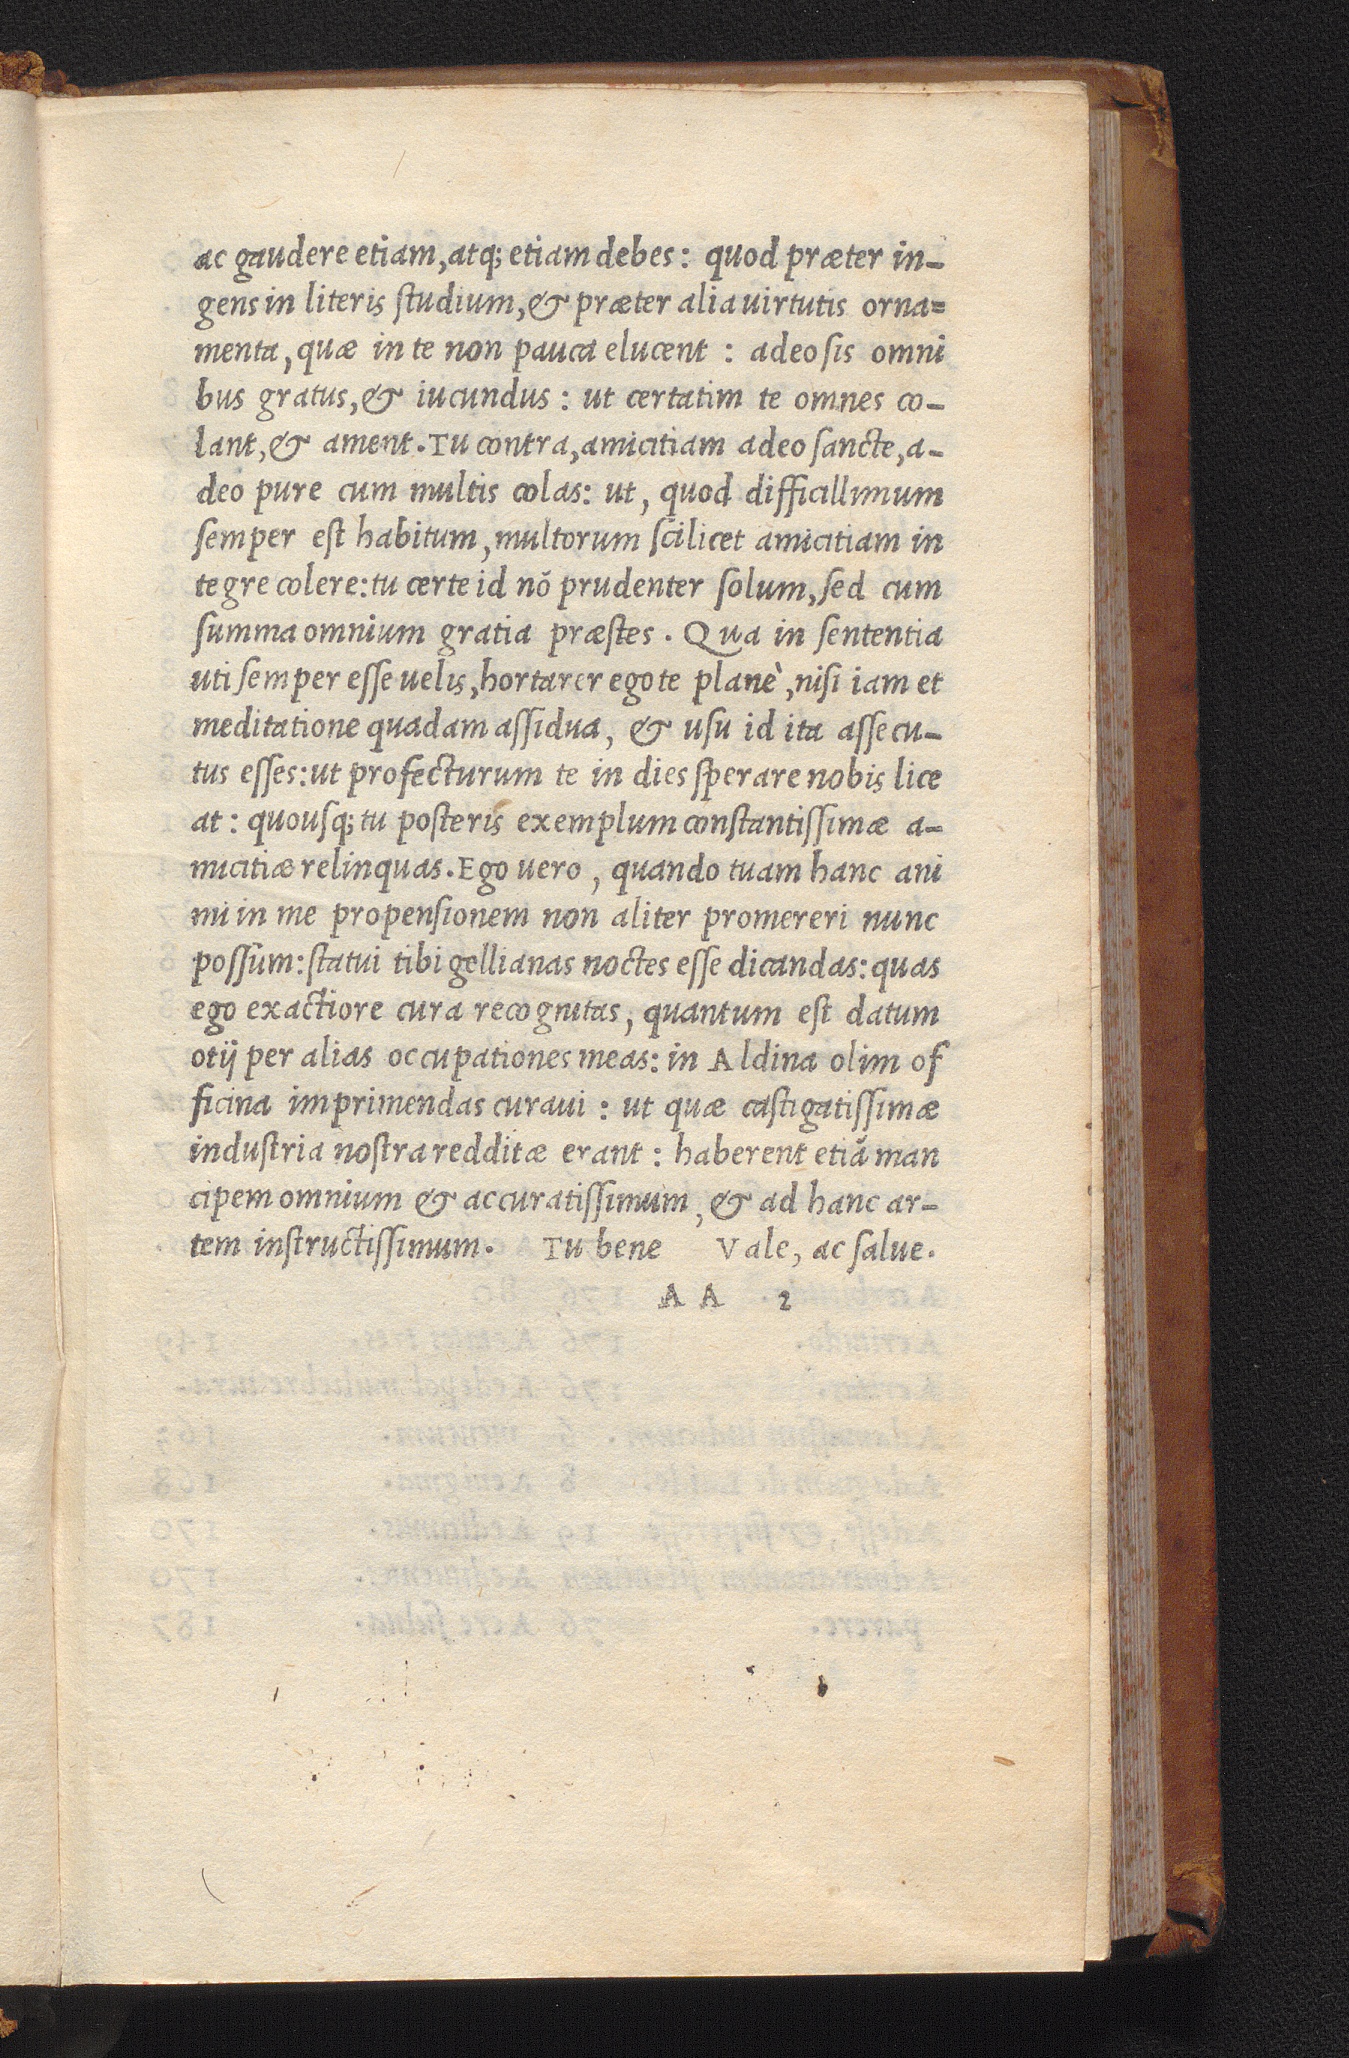 ac gaudere etiam, atq; etiam debes: quod præter in-
gens in literis ſtudium, & præter alia uirtutis orna-
menta, quæ in te non pauca elucent : adeo ſis omni
bus gratus, & iucundus : ut certatim te omnes co-
lant, & ament. Tu contra, amicitiam adeo ſancte, a-
deo pure cum multis colas: ut, quod difficillimum
ſemper eſt habitum, multorum ſcilicet amicitiam in
tegre colere: tu certe id nō prudenter ſolum, ſed cum
ſumma omnium gratia præſtes. Qua in ſententia
uti ſemper eſſe uelis, hortarer ego te planè, niſi iam et
meditatione quadam aſſidua, & uſu id ita aſſecu-
tus eſſes: ut profecturum te in dies ſperare nobis lice
at : quouſq; tu poſteris exemplum conſtantiſſimæ a-
micitiæ relinquas. Ego uero, quando tuam hanc ani
mi in me propenſionem non aliter promereri nunc
poſſum: ſtatui tibi gellianas noctes eſſe dicandas: quas
ego exactiore cura recognitas, quantum eſt datum
otij per alias occupationes meas: in Aldina olim of
ficina imprimendas curaui : ut quæ caſtigatiſſimæ
induſtria noſtra redditæ erant : haberent etiā man
cipem omnium & accuratiſſimum, & ad hanc ar-
tem inſtructiſſimum. Tu bene Vale, ac ſalue.
AA 2